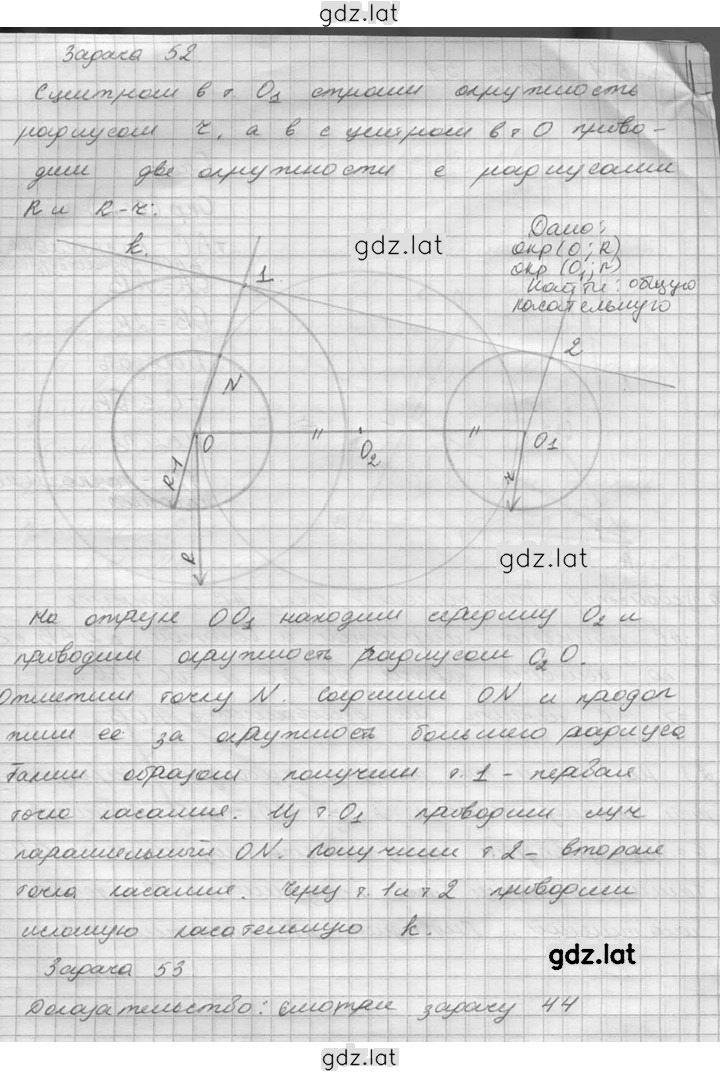 gdz.lat
Задача 52
С центром в т. O₁ строим окружность
радиусом r, а в с центром в т O прово-
дим две окружности с радиусами
R и R-r:
Дано:
окр(O; R)
окр(O₁; r)
Найти: общую
касательную
k.
gdz.lat
1
2
N
O
O₂
O₁
R-1
r
R
gdz.lat
На отрезке OO₁ находим середину O₂ и
проводим окружность радиусом O₂O.
Отметим точку N. Соединим ON и продол
жим ее за окружность большего радиуса
Таким образом получим т. 1 - первая
точка касания. Из т. O₁ проводим луч
параллельный ON. Получим т. 2 - вторая
точка касания. Через т. 1 и т 2 проводим
искомую касательную k.
gdz.lat
Задача 53
Доказательство: смотри задачу 44
gdz.lat